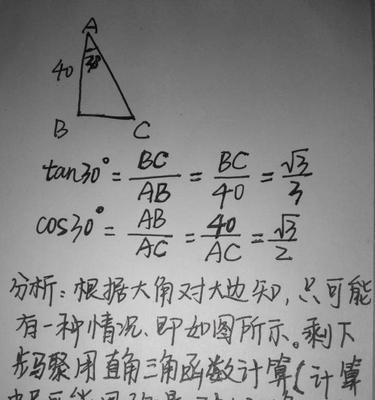 A
30°
40
B
C
tan30° = BC/AB = BC/40 = √3/3
cos30° = AB/AC = 40/AC = √3/2
分析:根据大角对大边知,只可能
有一种情况、即如图所示。剩下
步骤用直角三角函数计算(计算